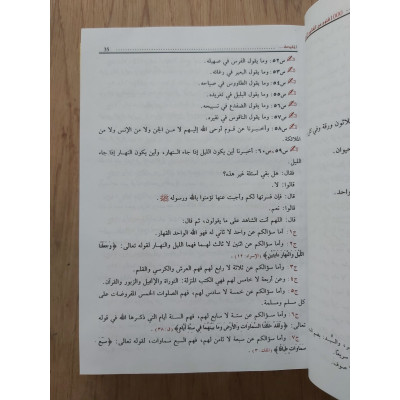 ٥٥
س٥٢: وما يقول الفرس في صهيله.
س٥٣: وما يقول البعير في رغائه.
س٥٤: وما يقول الطاووس في صياحه.
س٥٥: وما يقول البلبل في تغريده.
س٥٦: وما يقول الضفدع في تسبيحه.
س٥٧: وما يقول الناقوس في نقيره.
س٥٨: وأخبرنا عن قوم أوحى الله إليهم لا من الجن ولا من الإنس ولا من
الملائكة.
س٥٩، س٦٠: أخبرنا أين يكون الليل إذا جاء النهار، وأين يكون النهار إذا جاء
الليل.
فقال: هل بقي أسئلة غير هذه؟
قالوا: لا.
قال: فإن فسرتها لكم وأجبت عنها تؤمنوا بالله ورسوله ﷺ.
قالوا: نعم.
قال: اللهم أنت الشاهد على ما يقولون، ثم قال:
ج١: وأما سؤالكم عن واحد لا ثاني له فهو الله الواحد القهار.
ج٢: وأما سؤالكم عن اثنين لا ثالث لهما فهما الليل والنهار لقوله تعالى: ﴿وَجَعَلْنَا
اللَّيْلَ وَالنَّهَارَ آيَتَيْنِ﴾ (الإسراء: ١٢).
ج٣: وأما سؤالكم عن ثلاثة لا رابع لهم فهم العرش والكرسي والقلم.
ج٤: وعن أربعة لا خامس لهم فهي الكتب المنزلة: التوراة والإنجيل والزبور والقرآن.
ج٥: وأما سؤالكم عن خمسة لا سادس لهم، فهم الصلوات الخمس المفروضات على
كل مسلم ومسلمة.
ج٦: وأما سؤالكم عن ستة لا سابع لهم، فهم الستة أيام التي ذكرها الله في قوله
تعالى: ﴿وَلَقَدْ خَلَقْنَا السَّمَاوَاتِ وَالْأَرْضَ وَمَا بَيْنَهُمَا فِي سِتَّةِ أَيَّامٍ﴾ (ق: ٣٨).
ج٧: وأما سؤالكم عن سبعة لا ثامن لهم، فهم السبع سماوات، لقوله تعالى: ﴿سَبْعَ
سَمَاوَاتٍ طِبَاقًا﴾ (الملك: ٣).